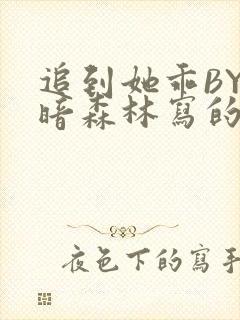 追到她乖BY
暗森林寫的
夜色下的寫手